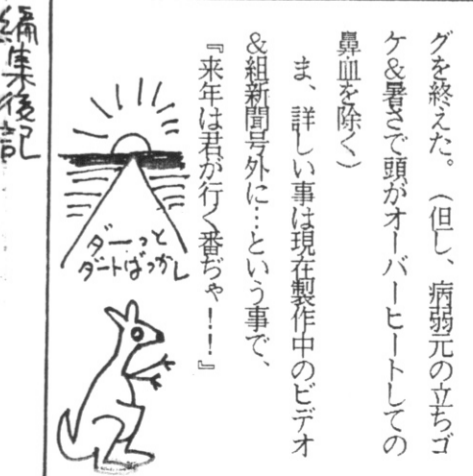 グを終えた。(但し、病弱元の立ちゴ
ケ&暑さで頭がオーバーヒートしての
鼻血を除く)
ま、詳しい事は現在製作中のビデオ
&組新聞号外に…という事で、
『来年は君が行く番ぢゃ!!』
ダーっと
ダートばっかし
編集後記